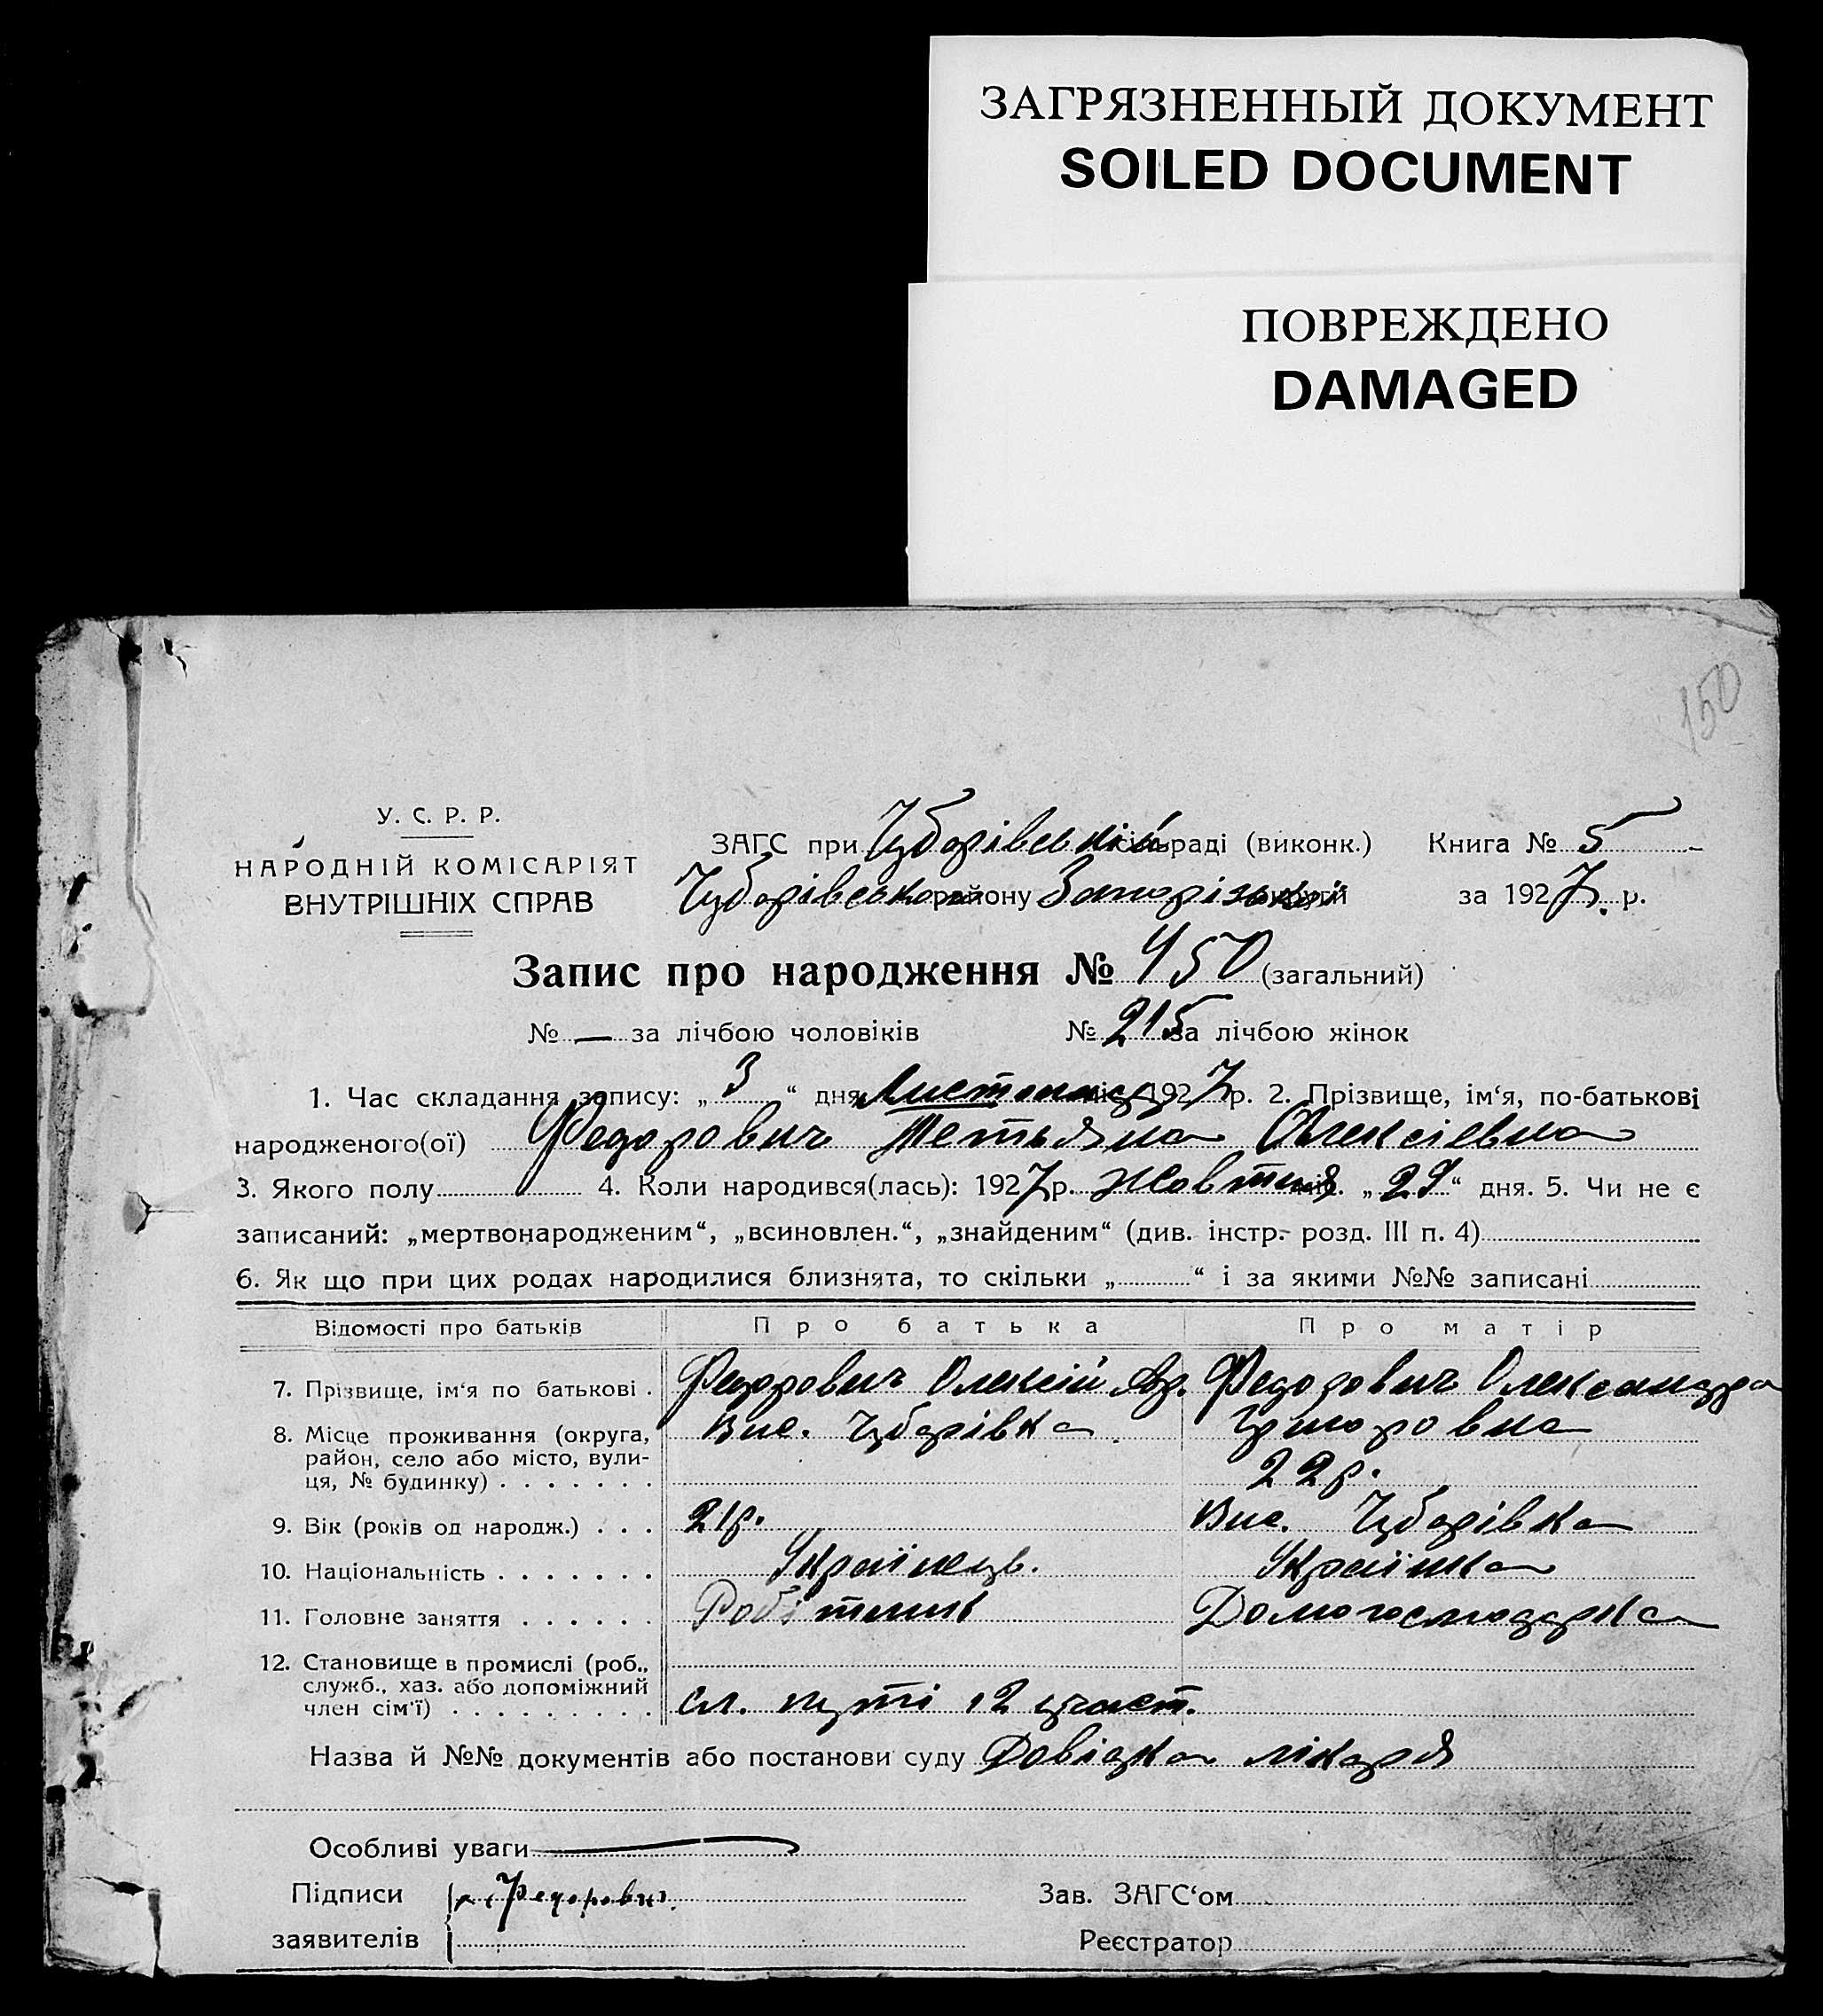 ЗАГРЯЗНЕННЫЙ ДОКУМЕНТ
SOILED DOCUMENT
ПОВРЕЖДЕНО
DAMAGED
150
У. С. Р. Р.
НАРОДНІЙ КОМІСАРІЯТ
ВНУТРІШНІХ СПРАВ
ЗАГС при Чубарівській сільраді (виконк.) Книга № 5
Чубарівського району Запорізької округи за 1927 р.
Запис про народження № 450 (загальний)
№ — за лічбою чоловіків № 215 за лічбою жінок
1. Час складання запису: „ 3 “ дня Листопад міс. 1927 р. 2. Прізвище, ім‘я, по-батькові
народженого(ої) Федорович Тетьяна Олексіевна
3. Якого полу 4. Коли народився(лась): 1927 р. Жовтня міс. „ 29 “ дня. 5. Чи не є
записаний: „мертвонародженим“, „всиновлен.“, „знайденим“ (див. інстр. розд. III п. 4)
6. Як що при цих родах народилися близнята, то скільки „ “ і за якими №№ записані
Відомості про батьків Про батька Про матір
7. Прізвище, ім‘я по батькові . Федорович Олексій Федорович Олександра
8. Місце проживання (округа, район, село або місто, вулиця, № будинку) . . . . . . . Вис. Чубарівка Григоровна
22 р.
9. Вік (років од народж.) . . . 21 р. Вис. Чубарівка
10. Національність . . . . . . . Українець. Українка
11. Головне заняття . . . . . . Робітник Домогосподарка
12. Становище в промислі (роб.,
служб., хаз. або допоміжний
член сім‘ї) . . . . . . . . . сл. путі 12 участ.
Назва й №№ документів або постанови суду Довідка лікаря
Особливі уваги
Підписи Федорович Зав. ЗАГС‘ом
заявителів Реєстратор